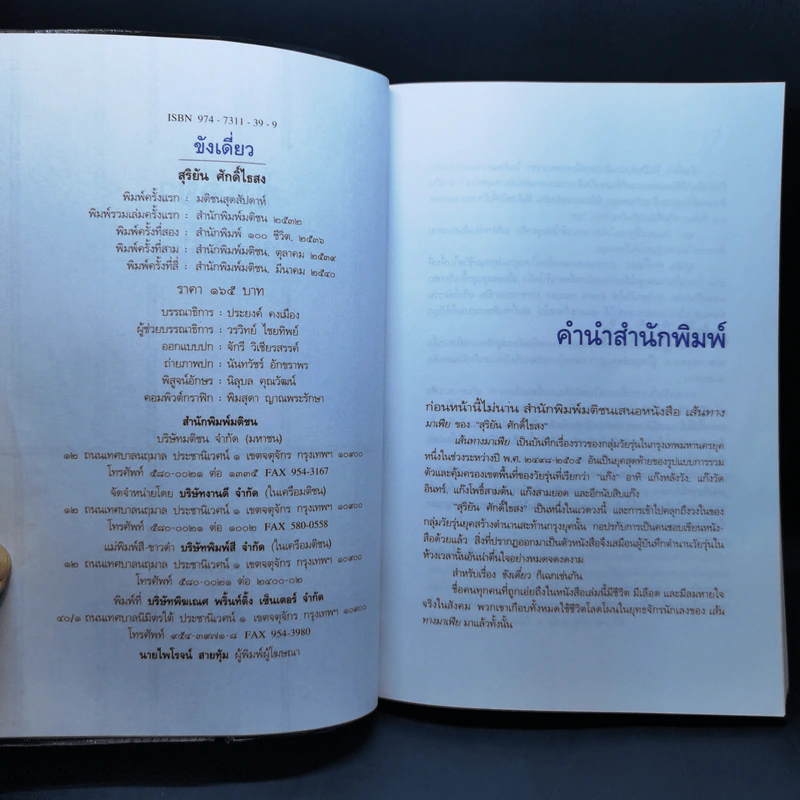 ISBN 974 - 7311 - 39 - 9
ขังเดี่ยว
สุริยัน ศักดิ์ไธสง
พิมพ์ครั้งแรก : มติชนสุดสัปดาห์
พิมพ์รวมเล่มครั้งแรก : สำนักพิมพ์มติชน ๒๕๓๒
พิมพ์ครั้งที่สอง : สำนักพิมพ์ ๑๐๐ ชีวิต, ๒๕๓๖
พิมพ์ครั้งที่สาม : สำนักพิมพ์มติชน, ตุลาคม ๒๕๓๙
พิมพ์ครั้งที่สี่ : สำนักพิมพ์มติชน, มีนาคม ๒๕๔๐
ราคา ๑๖๕ บาท
บรรณาธิการ : ประยงค์ คงเมือง
ผู้ช่วยบรรณาธิการ : วรวิทย์ ไชยทิพย์
ออกแบบปก : จักรี วิเชียรสรรค์
ถ่ายภาพปก : นันทวัชร์ อักขราพร
พิสูจน์อักษร : นิลุบล คุณวัฒน์
คอมพิวต์กราฟิก : พิมสุดา ญาณพระรักษา
สำนักพิมพ์มติชน
บริษัทมติชน จำกัด (มหาชน)
๑๒ ถนนเทศบาลนฤมาล ประชานิเวศน์ ๑ เขตจตุจักร กรุงเทพฯ ๑๐๙๐๐
โทรศัพท์ ๕๘๐-๐๐๒๑ ต่อ ๑๓๓๕ FAX 954-3167
จัดจำหน่ายโดย บริษัทงานดี จำกัด (ในเครือมติชน)
๑๒ ถนนเทศบาลนฤมาล ประชานิเวศน์ ๑ เขตจตุจักร กรุงเทพฯ ๑๐๙๐๐
โทรศัพท์ ๕๘๐-๐๐๒๑ ต่อ ๑๐๐๒ FAX 580-0558
แม่พิมพ์สี-ขาวดำ บริษัทพิมพ์สี จำกัด (ในเครือมติชน)
๑๒ ถนนเทศบาลนฤมาล ประชานิเวศน์ ๑ เขตจตุจักร กรุงเทพฯ ๑๐๙๐๐
โทรศัพท์ ๕๘๐-๐๐๒๑ ต่อ ๒๔๐๐-๐๒
พิมพ์ที่ บริษัทพิฆเณศ พริ้นท์ติ้ง เซ็นเตอร์ จำกัด
๔๐/๑ ถนนเทศบาลนิมิตรใต้ ประชานิเวศน์ ๑ เขตจตุจักร กรุงเทพฯ ๑๐๙๐๐
โทรศัพท์ ๙๕๔-๓๙๗๑-๘ FAX 954-3980
นายไพโรจน์ สายทุ้ม ผู้พิมพ์ผู้โฆษณา
คำนำสำนักพิมพ์
ก่อนหน้านี้ไม่นาน สำนักพิมพ์มติชนเสนอหนังสือ เส้นทาง
มาเฟีย ของ "สุริยัน ศักดิ์ไธสง"
เส้นทางมาเฟีย เป็นบันทึกเรื่องราวของกลุ่มวัยรุ่นในกรุงเทพมหานครยุค
หนึ่งในช่วงระหว่างปี พ.ศ. ๒๔๙๘-๒๕๐๕ อันเป็นยุคสุดท้ายของรูปแบบการรวม
ตัวและคุ้มครองเขตพื้นที่ของวัยรุ่นที่เรียกว่า "แก๊ง" อาทิ แก๊งหลังวัง, แก๊งวัด
อินทร์, แก๊งโพธิ์สามต้น, แก๊งสามยอด และอีกนับสิบแก๊ง
"สุริยัน ศักดิ์ไธสง" เป็นหนึ่งในแวดวงนี้ และการเข้าไปคลุกถึงวงในของ
กลุ่มวัยรุ่นยุคสร้างตำนานสะท้านกรุงยุคนั้น กอปรกับการเป็นคนชอบเขียนหนัง-
สือด้วยแล้ว สิ่งที่ปรากฏออกมาเป็นตัวหนังสือจึงเสมือนผู้บันทึกตำนานวัยรุ่นใน
ห้วงเวลานั้นอันน่าตื่นใจอย่างหมดจดงดงาม
สำหรับเรื่อง ขังเดี่ยว ก็เฉกเช่นกัน
ชื่อคนทุกคนที่ถูกเอ่ยถึงในหนังสือเล่มนี้มีชีวิต มีเลือด และมีลมหายใจ
จริงในสังคม พวกเขาเกือบทั้งหมดใช้ชีวิตโลดโผนในยุทธจักรนักเลงของ เส้น
ทางมาเฟีย มาแล้วทั้งนั้น